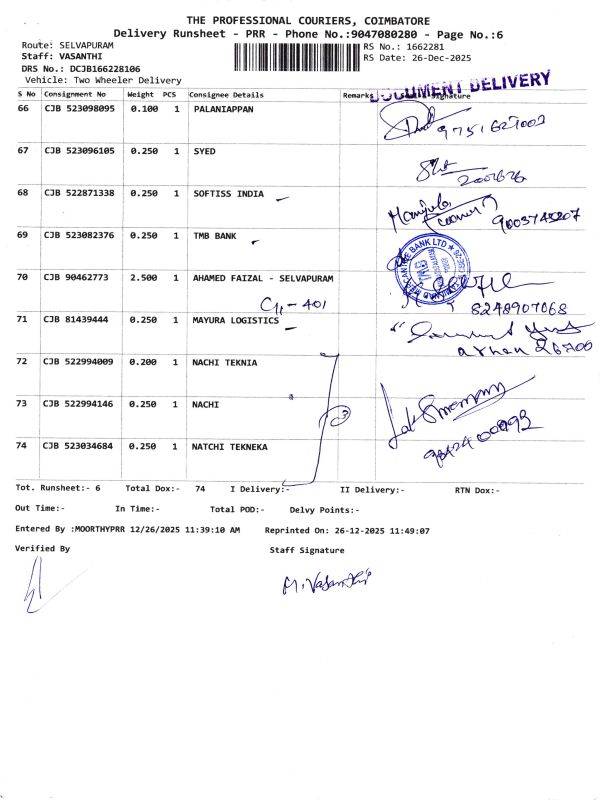 THE PROFESSIONAL COURIERS, COIMBATORE
Delivery Runsheet - PRR - Phone No.:9047080280 - Page No.:6
Route: SELVAPURAM RS No.: 1662281
Staff: VASANTHI RS Date: 26-Dec-2025
DRS No.: DCJB166228106
Vehicle: Two Wheeler Delivery
DOCUMENT DELIVERY
S No Consignment No Weight PCS Consignee Details Remarks Signature
66 CJB 523098095 0.100 1 PALANIAPPAN
9751627003
67 CJB 523096105 0.250 1 SYED
68 CJB 522871338 0.250 1 SOFTISS INDIA
69 CJB 523082376 0.250 1 TMB BANK
70 CJB 90462773 2.500 1 AHAMED FAIZAL - SELVAPURAM
8248907068
71 CJB 81439444 0.250 1 MAYURA LOGISTICS
72 CJB 522994009 0.200 1 NACHI TEKNIA
73 CJB 522994146 0.250 1 NACHI
74 CJB 523034684 0.250 1 NATCHI TEKNEKA
Tot. Runsheet:- 6 Total Dox:- 74 I Delivery:- II Delivery:- RTN Dox:-
Out Time:- In Time:- Total POD:- Delvy Points:-
Entered By :MOORTHYPRR 12/26/2025 11:39:10 AM Reprinted On: 26-12-2025 11:49:07
Verified By Staff Signature
M. Vasanthi